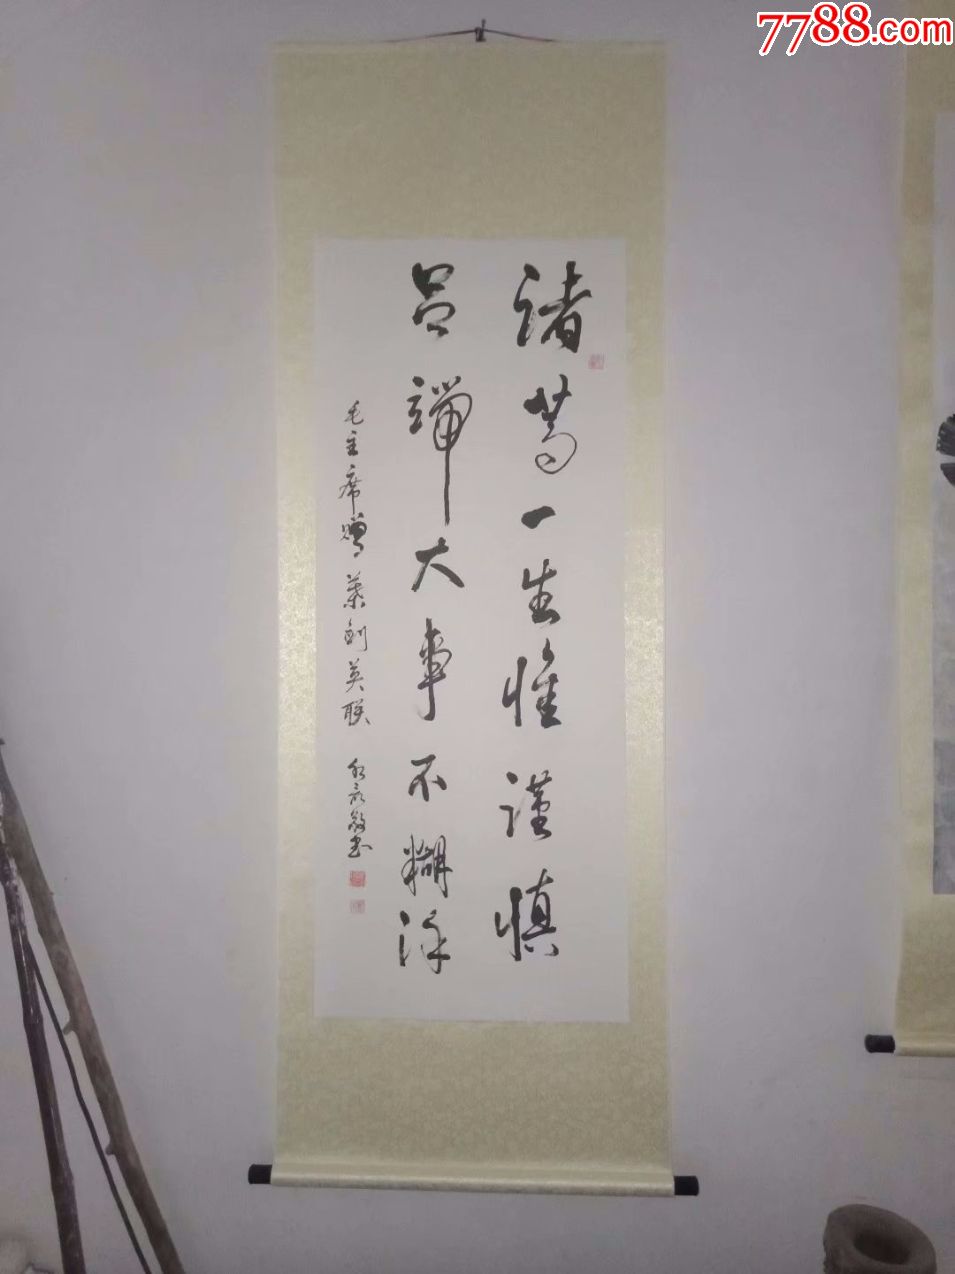 诸葛一生惟谨慎
吕端大事不糊涂
毛主席赠叶剑英联
书
7788.com